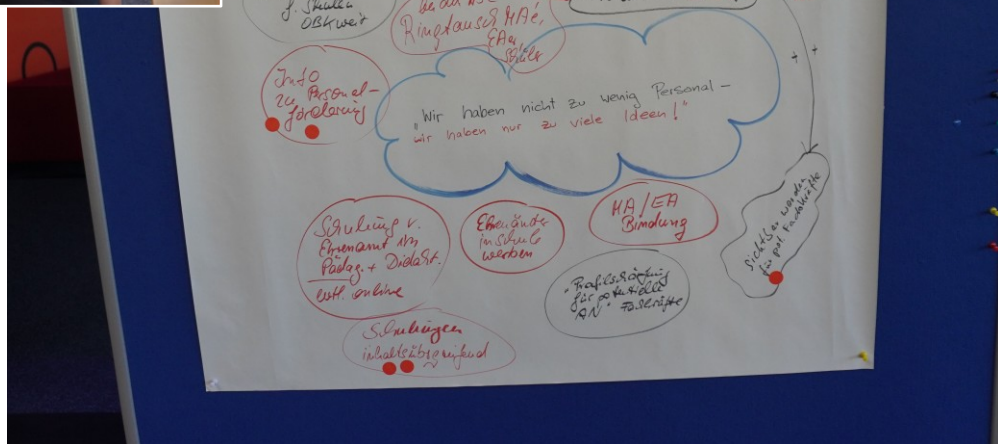 f. Skulen
OBKweit
Ringtausch HAé,
EAe,
Info
zu Personal-
förderung
"Wir haben nicht zu wenig Personal –
wir haben nur zu viele Ideen!"
Schulung v.
Ehrenamt im
Pädag. + Didakt.
evtl. online
Ehrenämter
in Schule
werben
HA/EA
Bindung
sichtbar werden
für pot. Fachkräfte
"Profilschärfung
für potentielle
AN" Fachkräfte
Schulungen
inhaltsübergreifend